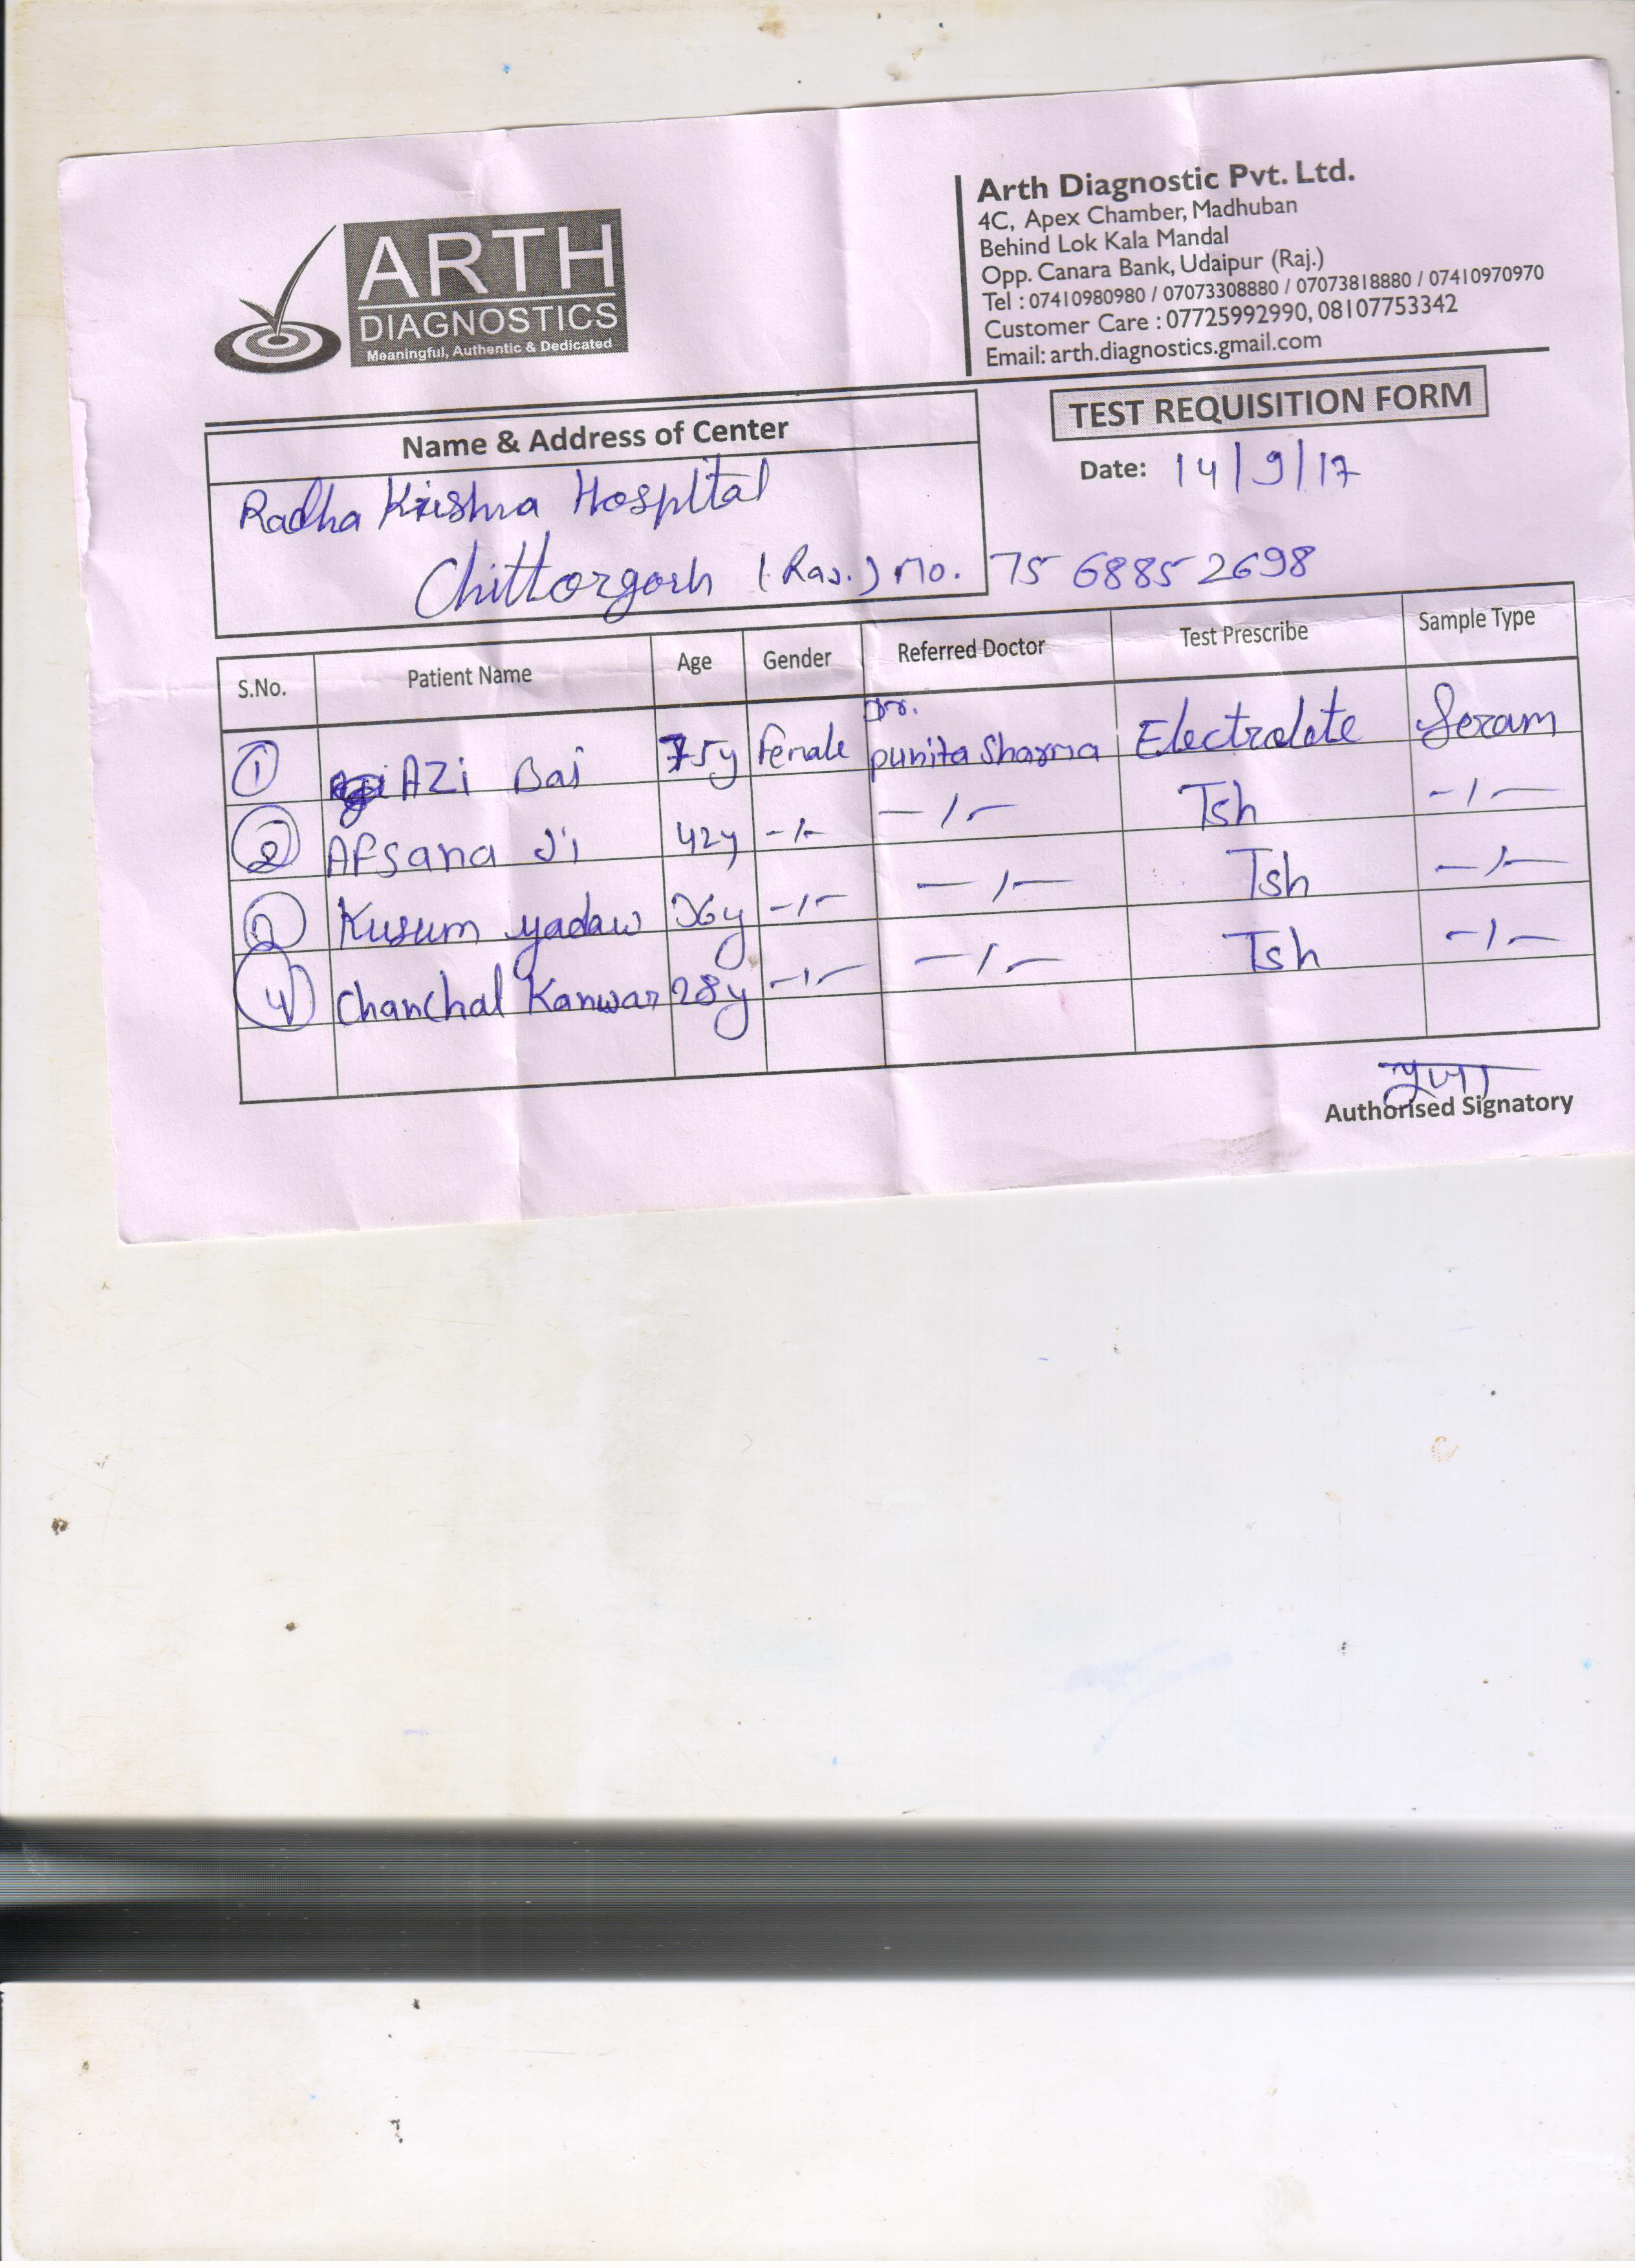 ARTH
DIAGNOSTICS
Meaningful, Authentic & Dedicated
Arth Diagnostic Pvt. Ltd.
4C, Apex Chamber, Madhuban
Behind Lok Kala Mandal
Opp. Canara Bank, Udaipur (Raj.)
Tel : 07410980980 / 07073308880 / 07073818880 / 07410970970
Customer Care : 07725992990, 08107753342
Email: arth.diagnostics.gmail.com
TEST REQUISITION FORM
Date: 14/9/17
Name & Address of Center
Radha Krishna Hospital
Chittorgarh (Raj.) Mo. 75 6885 2698
S.No. Patient Name Age Gender Referred Doctor Test Prescribe Sample Type
1 AZi Bai 75y Female Dr. punita Sharma Electrolete Seram
2 Afsana Ji 42y -/- -/- Tsh -/-
Kusum yadaw 36y -/- -/- Tsh -/-
4 Chanchal Kanwar 28y -/- -/- Tsh -/-
पूजा
Authorised Signatory